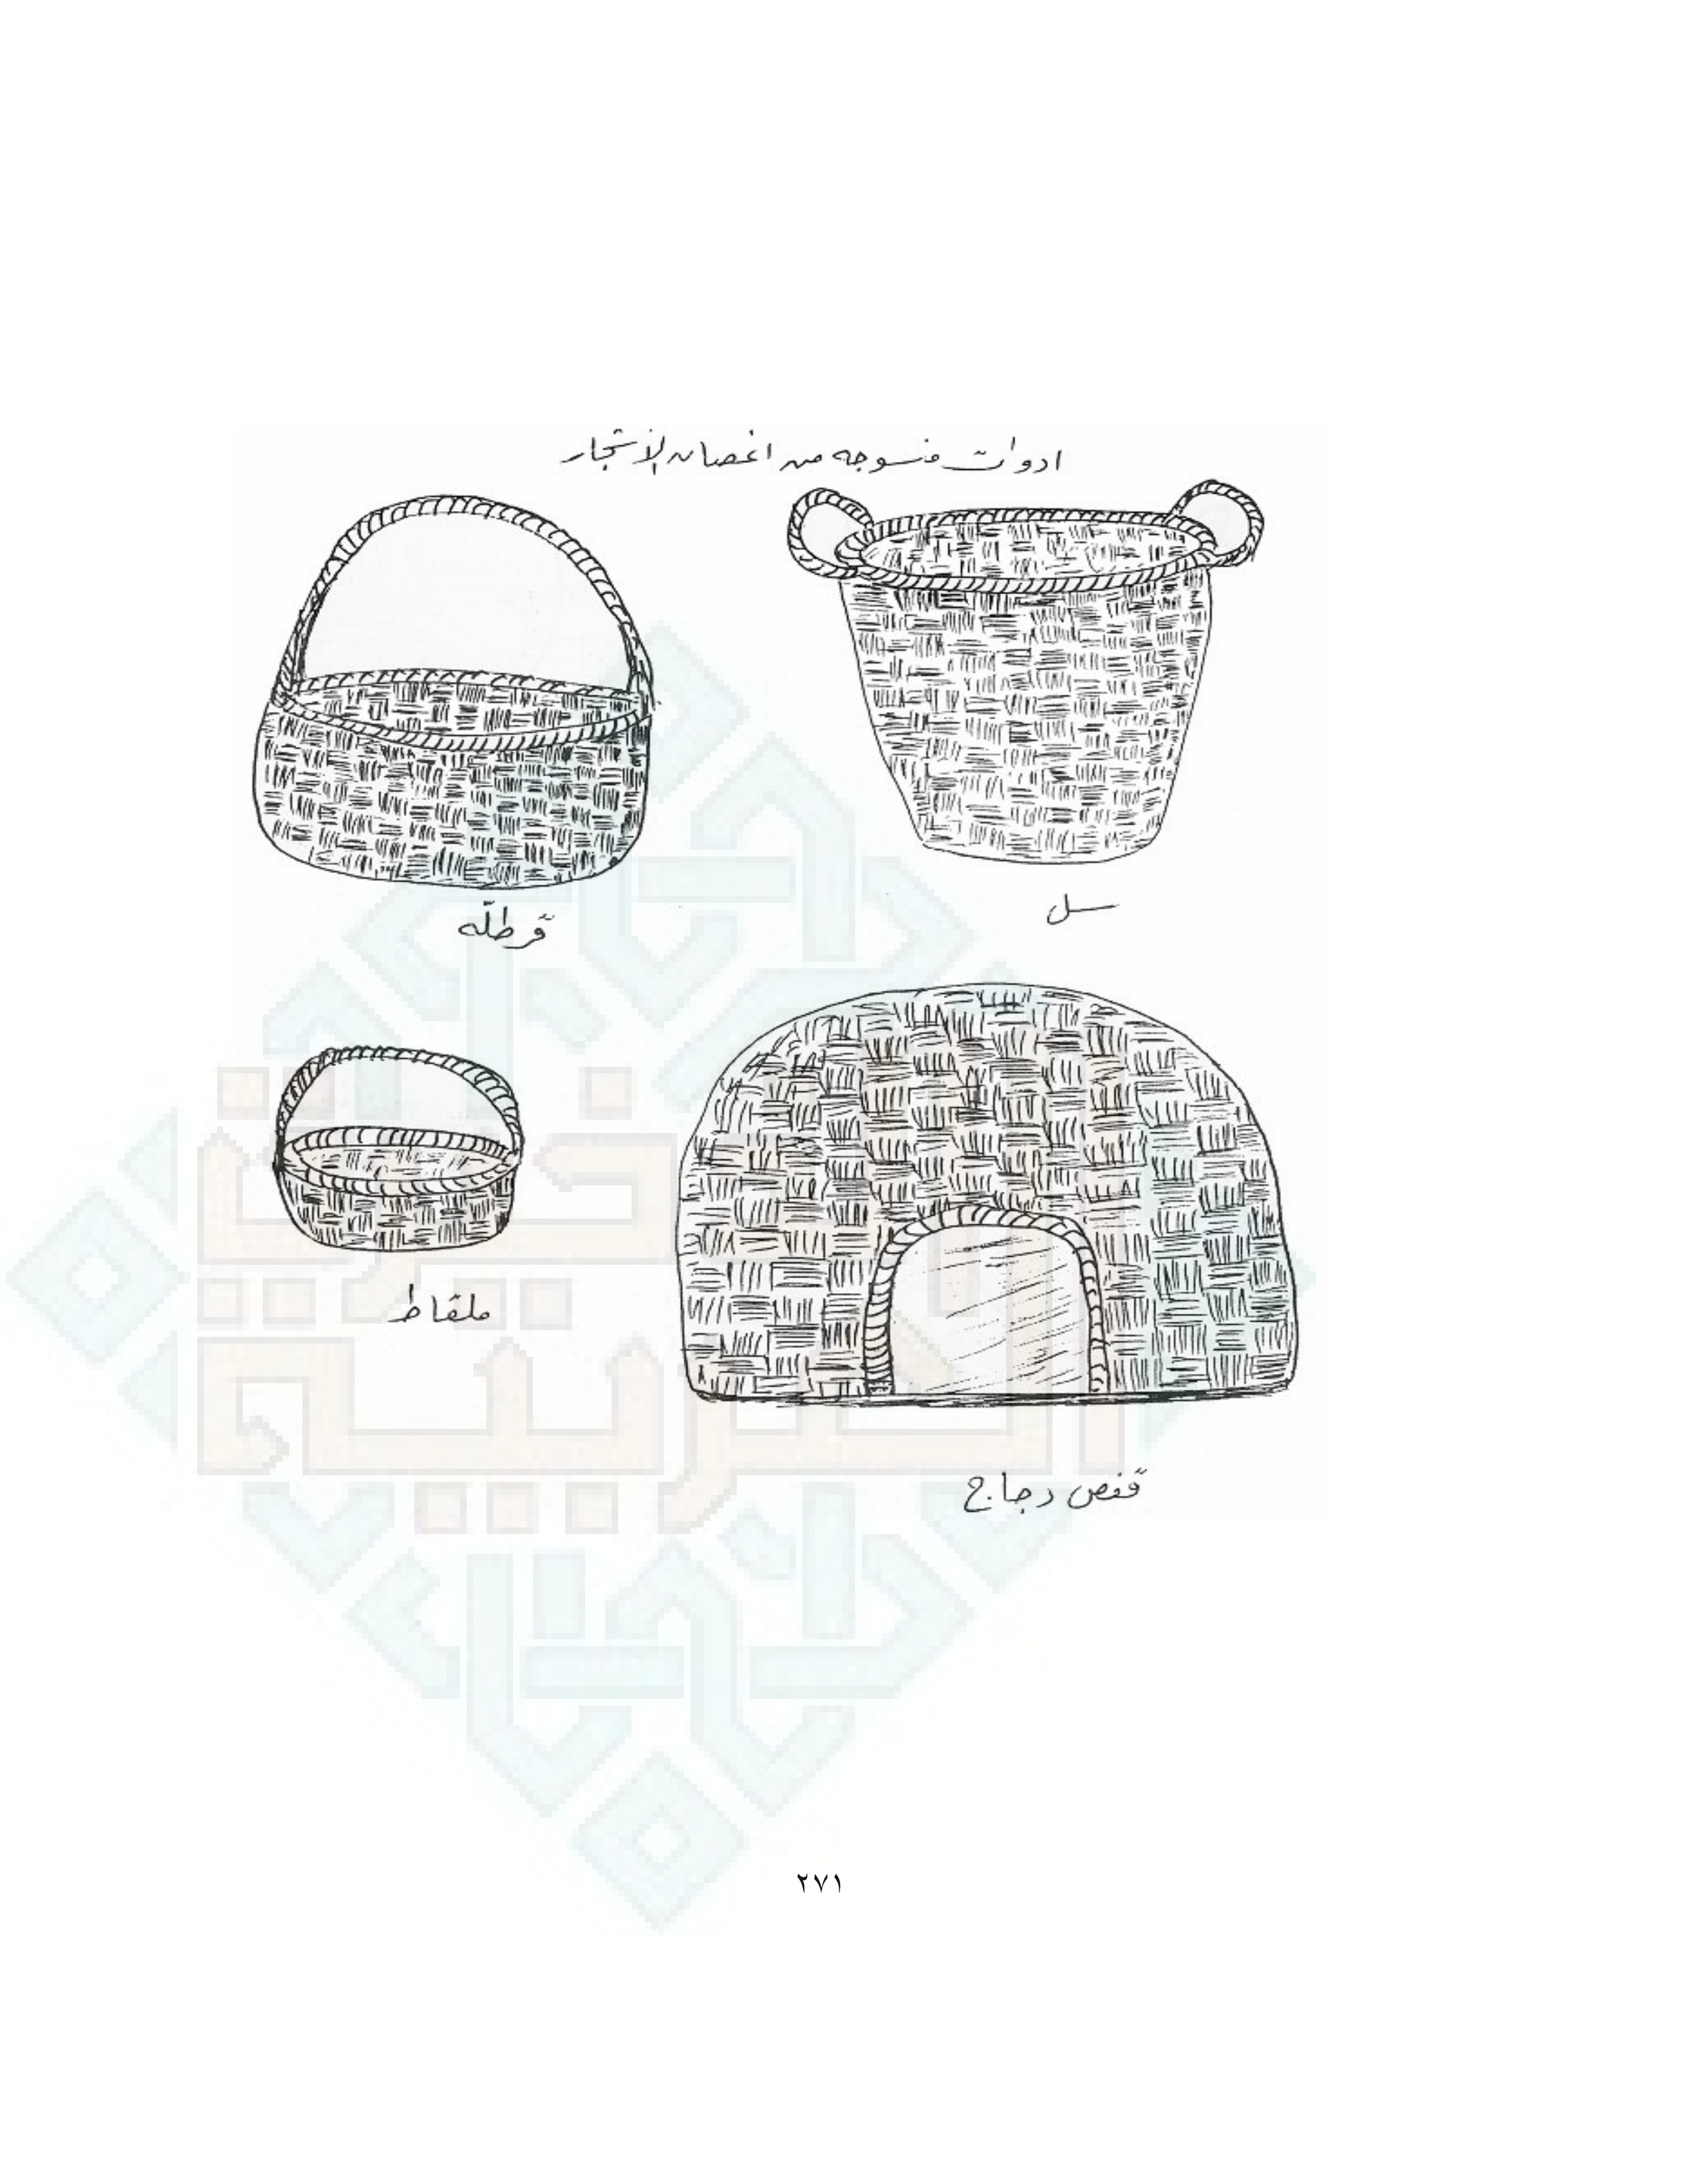 ادوات منسوجه من اغصان الأشجار
سل
قرطلّه
ملقاط
قفص دجاج
٢٧١